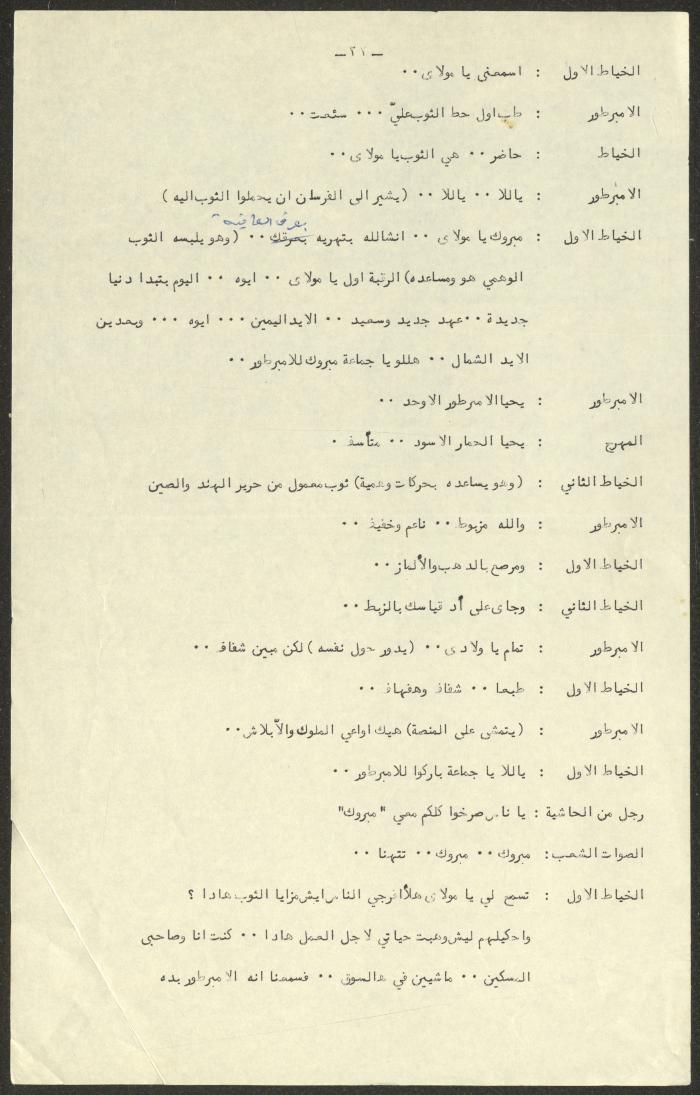 ـ ٢١ ـ
الخياط الاول : اسمعنى يا مولاى ٠٠
الامبرطور : طب اول حط الثوب عليّ ٠٠٠ سئمت ٠٠
الخياط : حاضر ٠٠ هي الثوب يا مولاى ٠٠
الامبرطور : ياللا ٠٠ ياللا ٠٠ (يشير الى الفرسان ان يحملوا الثوب اليه )
بعرق العافيه
الخياط الاول : مبروك يا مولاى ٠٠ انشالله بتهريه بعرقك ٠٠ (وهو يلبسه الثوب
الوهمي هو ومساعده) الرتبة اول يا مولاى ٠٠ ايوه ٠٠ اليوم بتبدا دنيا
جديدة ٠٠ عهد جديد وسعيد ٠٠ الايد اليمين ٠٠٠ ايوه ٠٠٠ وبعدين
الايد الشمال ٠٠ هللو يا جماعة مبروك للامبرطور ٠٠
الامبرطور : يحيا الامبرطور الاوحد ٠٠
المهرج : يحيا الحمار الاسود ٠٠ متأسف ٠
الخياط الثاني : (وهو يساعده بحركات وهمية) ثوب معمول من حرير الهند والصين
الامبرطور : والله مزبوط ٠٠ ناعم وخفيف ٠٠
الخياط الاول : ومرصع بالدهب والألماز ٠٠
الخياط الثاني : وجاى على أد قياسك بالزبط ٠٠
الامبرطور : تمام يا ولادى ٠٠ (يدور حول نفسه ) لكن مبين شفاف ٠٠
الخياط الاول : طبعا ٠٠ شفاف وهفهاف ٠٠
الامبرطور : (يتمشى على المنصة) هيك اواعي الملوك والأبلاش ٠٠
الخياط الاول : ياللا يا جماعة باركوا للامبرطور ٠٠
رجل من الحاشية : يا ناس صرخوا كلكم معي "مبروك"
اصوات الشعب : مبروك ٠٠ مبروك ٠٠ تتهنا ٠٠
الخياط الاول : تسمح لي يا مولاى هلأ افرجي الناس ايش مزايا الثوب هادا ؟
واحكيلهم ليش وهبت حياتي لاجل العمل هادا ٠٠ كنت انا وصاحبى
المسكين ٠٠ ماشيين في هالسوق ٠٠ فسمعنا انه الامبرطور بده